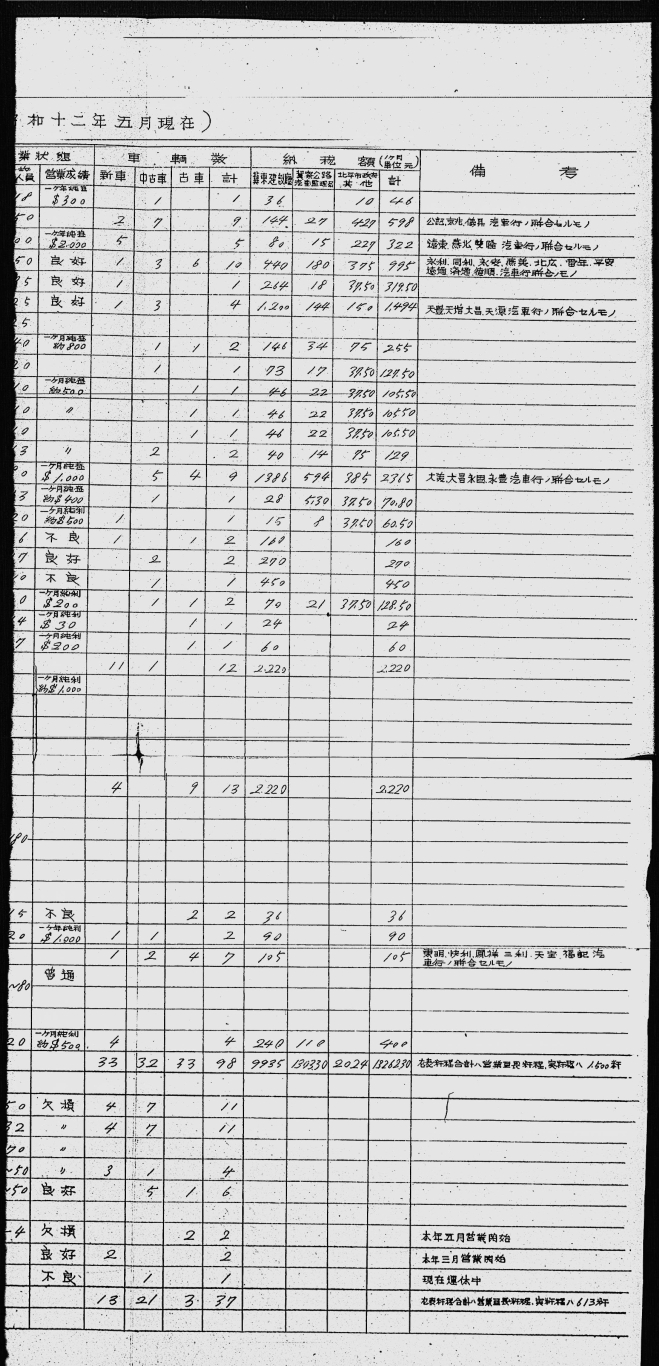 和十二年五月現在)
業状態 車輌数 納税額(一ケ月単位元) 備考
人員 営業成績 新車 中古車 古車 計 冀東建設廳 冀察公路汽車監理局 北平市政府其他 計
18 一ケ年純益$300 1 1 36 10 46
50 2 7 9 144 27 427 598 公記,京北,儀昌 汽車行ノ聯合セルモノ
00 一ケ年純益$2.000 5 5 80 15 227 322 遠東,燕北,雙隆 汽車行ノ聯合セルモノ
50 良好 1 3 6 10 440 180 375 995 永利,同利,永安,燕美,北広,晋年,平安
遠通,済通,徳順,汽車行聯合ノモノ
75 良好 1 1 264 18 37.50 319.50
25 良好 1 3 4 1.200 144 150 1.494 天豊天増大昌天源汽車行ノ聯合セルモノ
25
40 一ケ月純益約800 1 1 2 146 34 75 255
20 1 1 73 17 37.50 127.50
10 一ケ月純益約500 1 1 46 22 37.50 105.50
10 〃 1 1 46 22 37.50 105.50
10 1 1 46 22 37.50 105.50
63 〃 2 2 40 14 75 129
00 一ケ月純益$1.000 5 4 9 1386 594 385 2365 大陸,大昌永囲,永豊 汽車行ノ聯合セルモノ
33 一ケ月純益約$400 1 1 28 5.30 37.50 70.80
20 一ケ月純利約$500 1 1 15 8 37.50 60.50
6 不良 1 1 2 160 160
7 良好 2 2 270 270
10 不良 1 1 450 450
0 一ケ月純利$200 1 1 2 70 21 37.50 128.50
4 一ケ月純利$30 1 1 24 24
7 一ケ月純利$200 1 1 60 60
11 1 12 2.220 2.220
一ケ月純利約$1.000
4 9 13 2.220 2.220
180
15 不良 2 2 36 36
20 一ケ年純利$1.000 1 1 2 90 90
1 2 4 7 105 105 東明,快利,鳳祥 三利,天宝,福記 汽
車行ノ聯合セルモノ
普通
~80
20 一ケ月純利約$500 4 4 240 110 400
33 32 33 98 9935 1303.30 2024 13262.30 右表粁程合計ハ営業亘長粁程,実粁程ハ 1.500粁
50 欠損 4 7 11
32 〃 4 7 11
70 〃
~50 〃 3 1 4
~50 良好 5 1 6
-4 欠損 2 2 本年五月営業開始
良好 2 2 本年三月営業開始
不良 1 1 現在運休中
13 21 3 37 右表粁程合計ハ営業亘長粁程,実粁程ハ613粁